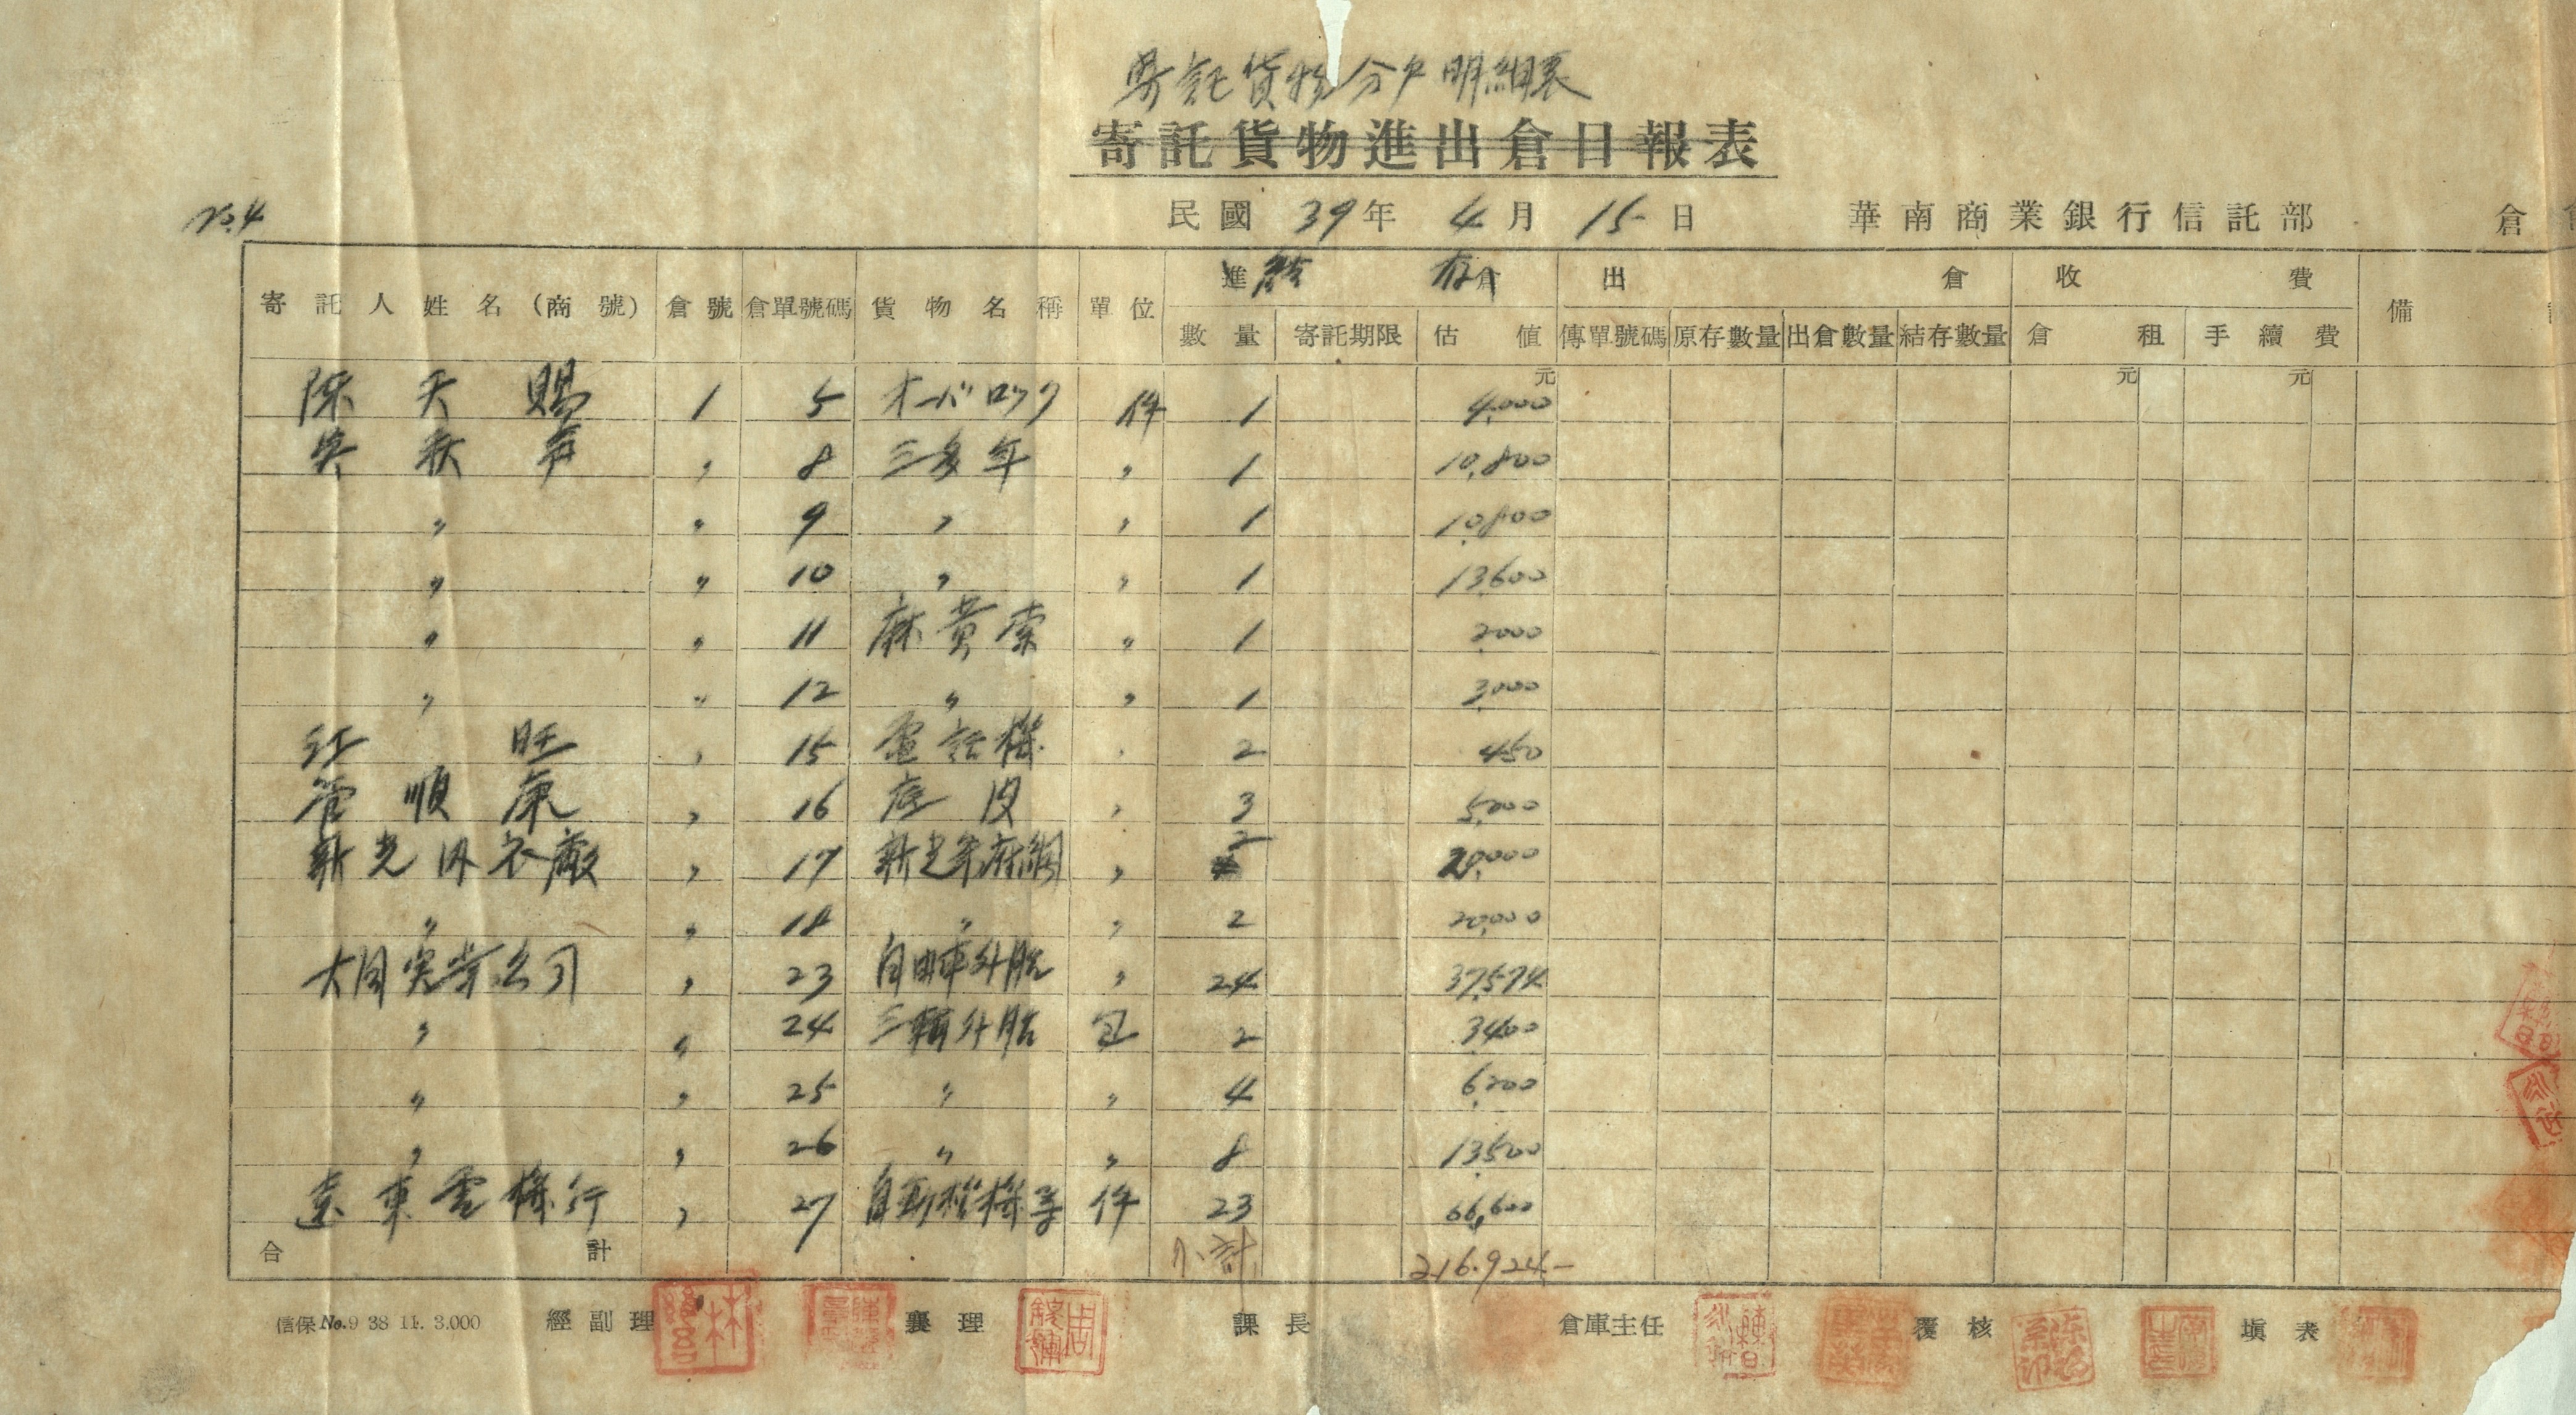 寄託貨物分戶明細表
寄託貨物進出倉日報表
No.4
民國 39年 4月 15日 華南商業銀行信託部 倉
寄託人姓名(商號) 倉號 倉單號碼 貨物名稱 單位 進結 存倉 出倉 收費 備
數量 寄託期限 估值 傳單號碼 原存數量 出倉數量 結存數量 倉租 手續費
元 元 元
陳天賜 1 5 オーバロック 件 1 4,000
吳秋 〃 8 三多年 〃 1 10,800
〃 〃 9 〃 〃 1 10,800
〃 〃 10 〃 〃 1 13,600
〃 〃 11 麻黃素 〃 1 2,000
〃 〃 12 〃 〃 1 3,000
江旺 〃 15 電話機 〃 2 450
管順康 〃 16 底皮 〃 3 5,000
新光内衣廠 〃 17 新光 〃 2 20,000
〃 〃 18 〃 〃 2 20,000
大同実業公司 〃 23 自由車外胎 〃 24 37,574
〃 〃 24 三輪外胎 包 2 3,400
〃 〃 25 〃 〃 4 6,200
〃 〃 26 〃 〃 8 13,500
遠東電機行 〃 27 自動 件 23 66,600
合計 小計 216.924.—
信保No.9 38 11. 3.000 經副理 襄理 課長 倉庫主任 覆核 填表